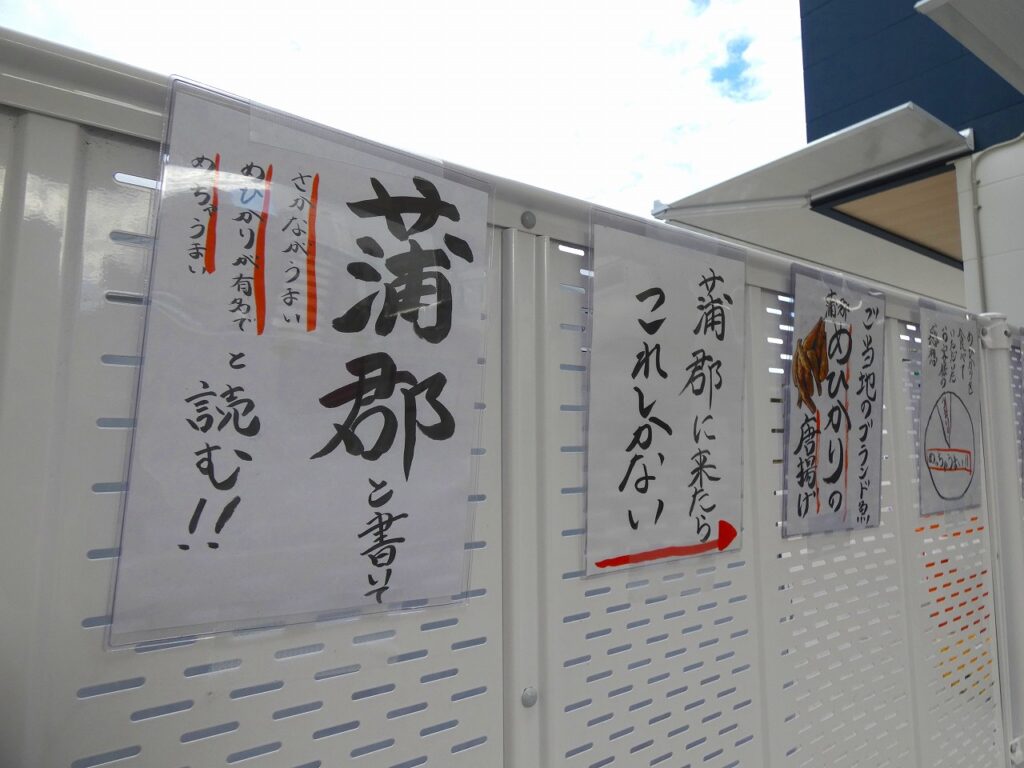 蒲郡と書いて
さかながうまい
めひかりが有名で
めちゃうまい
と読む!!
蒲郡に来たら
これしかない
ご当地のブランド魚!!
蒲郡めひかりの
唐揚げ
めっちゃうまい!!